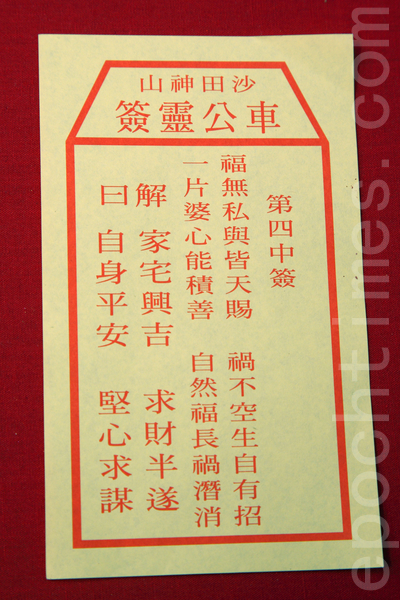 沙田神山
車公靈簽
第四中簽
福無私與皆天賜 禍不空生自有招
一片婆心能積善 自然福長禍潛消
解 家宅興吉 求財半遂
曰 自身平安 堅心求謀
epochtimes.com